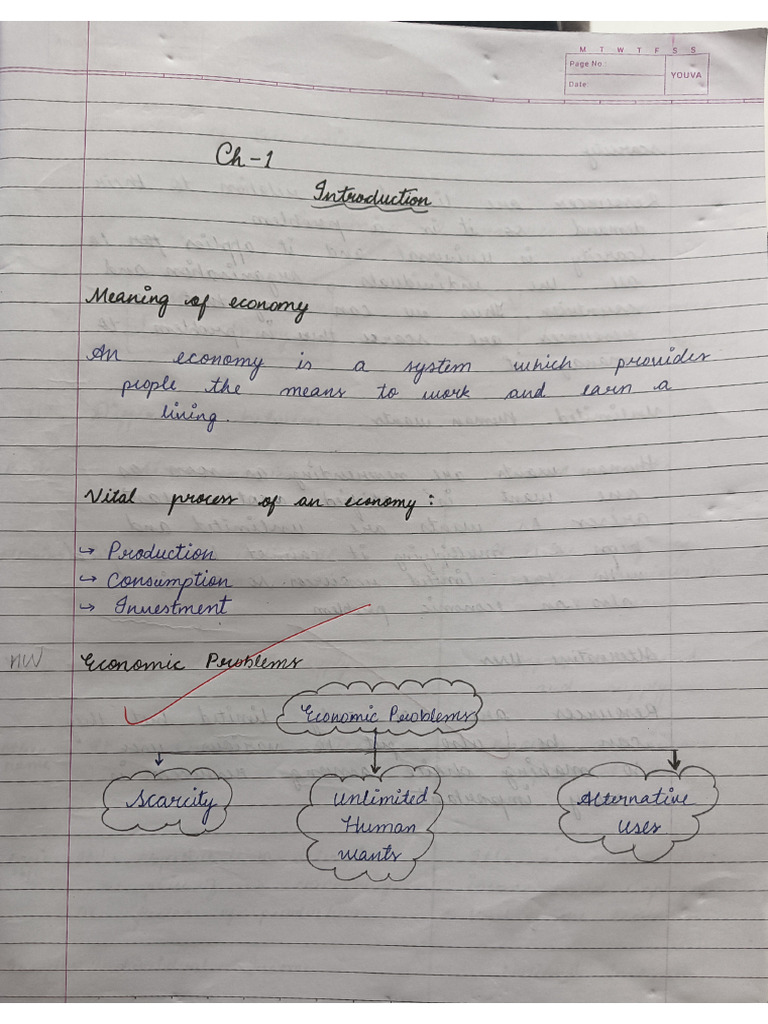 M T W T F S S
Page No.:
YOUVA
Date:
Ch-1
Introduction
Meaning of economy
An economy is a system which provides
people the means to work and earn a
living.
Vital process of an economy:
→ Production
→ Consumption
→ Investment
Economic Problems
Economic Problems
Scarcity
Unlimited
Human
wants
Alternative
uses